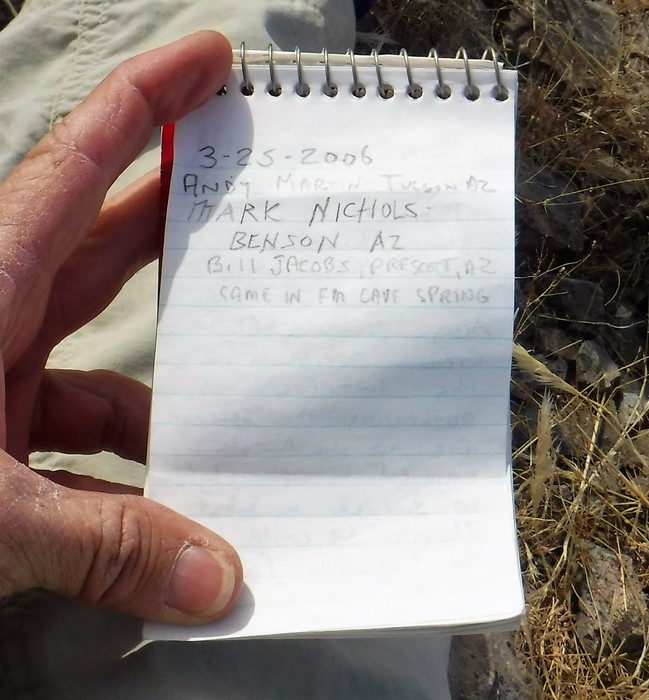 3-25-2006
ANDY MARTIN TUCSON AZ
MARK NICHOLS
BENSON AZ
Bill JACOBS, PRESCOTT, AZ
CAME IN FM CAVE SPRING